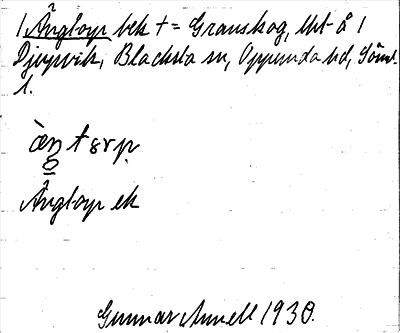 1 Ängtorp bek += Granskog, lht å 1
Djupvik, Blacksta sn, Oppunda hd, Söml.
1.
Ängtorp ek
Gunnar Arnell 1930.